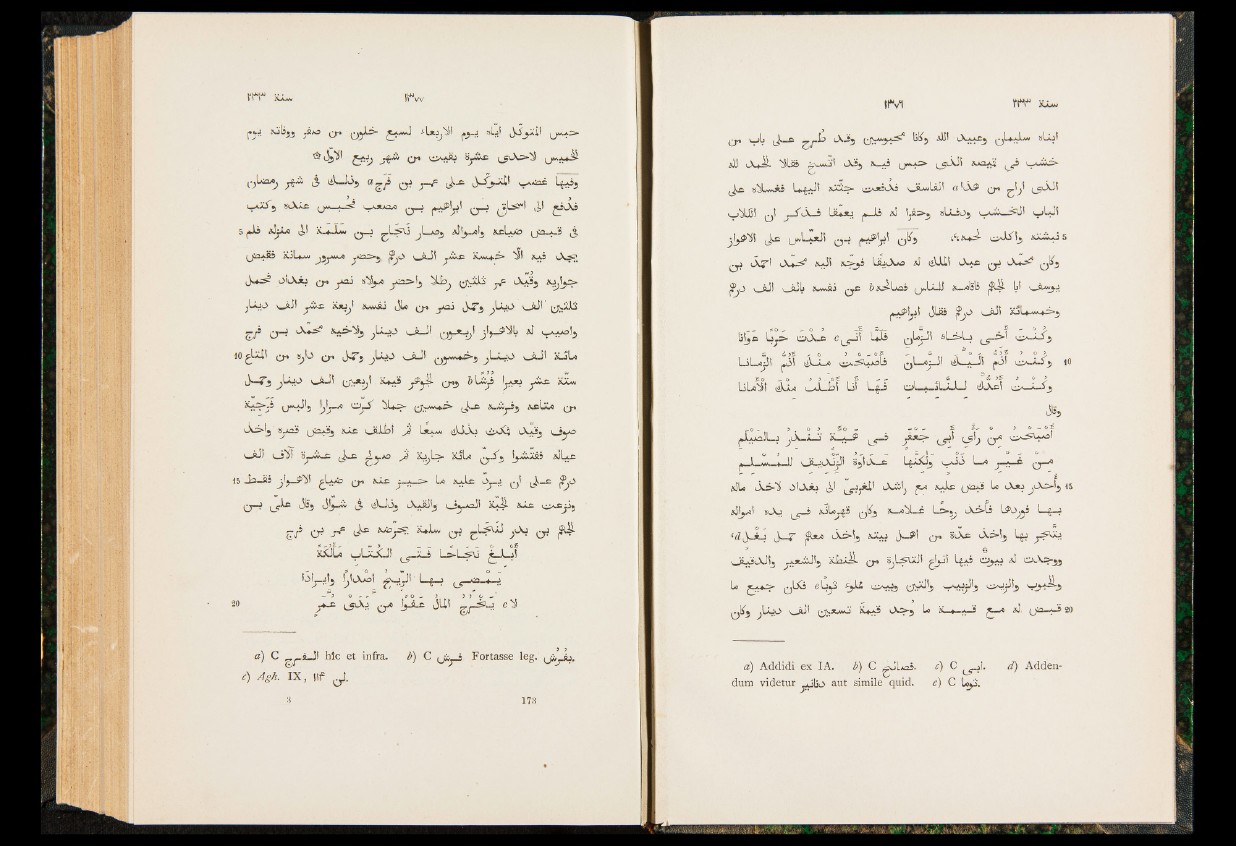 سنة ٢٣٣ ١٣٧٦
ابناه سليمان وعبيد الله وكانا محبوسين وقد طرح على باب من
خشب في قميصه الذى حبس فيه وقد اتّسخ فقالا الحمد لله
الذى اراح من هذا a الفاسق فدفعت جثّته اليهما فغسلاه على
الباب الخشب ودفناه وحفرا له فلم يعمّقا فذكر ان الكلاب
5 نبشته واكلت لحمه، وكان ابراهيم بن العبّاس على الاهواز
وكان محمّد بن عبد الملك له صديقا فوجّه اليه محمّد احمد بن
يوسف ابا الجهم فاقامه للناس فصالحه b عن نفسه بالف الف درهم
وخمسمائة الف درهم فقال ابراهيم
وكُنْتَ أَخى بإخاء الزمان فَلَمَّا أَنَى c عُدْتَ حَرْبًا عَوَانَا
10 وكُنْتُ أَذُمُّ إِلَيْكَ الزَّمَانَ فَأَصْبَحْتُ مِنْكَ أَذُمُّ الزَّمَانا
وكُنْتُ أُعِدُّكَ لِلنَّائِبَاتِ فَهَا أَنا أَطْلُبُ مِنْكَ الأَمَانَا
وقال
أَصْبَحْتُ مِنْ رَأْىِ أَبِى جَعْفَرٍ فى هَيْئَةٍ تُنْذِرُ بِالصَّيْلَمِ
مِنْ غَيْرِ ما ذَنْبٍ وَلٰكِنَّهَا عَدَاوَةُ الزِّنْدِيقِ لِلمُسْلِمِ
15 وأحدر بعد ما قبض عليه مع راشد المغربىّ الى بغداد لاخذ ماله
بها فوردها فأخذ روحا غلامه وكان قهرمانه فى يده امواله
يتّجر بها واخذ عدّة من اهل بيته واخذ معهم حمل بَغْل d،
ووجدت له بيوت فيها انواع التجارة من الحنطة والشعير والدقيق
والحبوب والزيت والزبيب والتين وبيت مملوء ثومًا e فكان جميع ما
20 قبض له مع قيمة ما وُجد قيمة تسعين الف دينار وكان
a) Addidi ex IA. b) C فصالح. c) C ابى. d) Adden-
dum videtur دنانير aut simile quid. e) C ثوما.
سنة ٢٣٣ ١٣٧٧
حبس المتوكّل ايّاه يوم الاربعاء لسبع خلون من صفر ووفاته يوم
الخميس لاحدى عشرة بقيت من شهر ربيع الاوّل ۞
وفيها غضب المتوكّل على عمر بن فرج a وذلك فى شهر رمضان
فدفع الى اسحاق بن ابراهيم بن مصعب فحُبس عنده وكتب
5 فى قبض ضياعه وامواله وصار نجاح بن سَلَمة الى منزله فلم
يجد فيه الّا خمسة عشر الف درهم وحضر مسرور سمانة فقبض
جواريه وقُيّد عمر ثلثين رطلا واحضر مولاه نصر من بغداد فحمل
ثلثين الف دينار وحمل نصر من مال نفسه اربعة عشر الف دينار
واصيب له بالاهواز اربعون الف دينار ولاخيه محمّد بن فرج
10 مائة الف دينار وخمسون الف دينار وحمل من داره من المتاع
ستّة عشر بعيرا فُرُشًا b ومن الجوهر قيمة اربعين الف دينار وحمل
من متاعه وفرشه على خمسين جملا كرّت مرارا والبس فَرَجيّة
صوف وقُيّد فمكث بذلك سبعًا ثم اطلف عنه وقبض قصره واخذ
عياله ففُتّشوا وكنّ مائة جارية ثم صولح على عشرة آلاف الف
15 درهم على ان يردّ عليه ما حيز عنه من ضياع الاهواز فقط
ونزعت عنه الجُبّة الصوف والقيد وذلك فى شوّال وقال علىّ بن
الجهم بن بدر لنجاح بن سلمة يحرّضه على عمر بن فرج
أَبْلِغْ نَجَاحًا فَتَى الكُتّابِ مَأْلُكَةً
يَمْضى بها الرِّيحُ إِصْدارًا وإيرادَا
20 لا c يَخْرُجُ المَالُ عَفْوًا مِن يَدَىْ عُمَرٍ
a) C الفرج hic et infra. b) C فرش Fortasse leg. بفُرُش.
c) Agh. IX, ١١٤ لن.
3 173